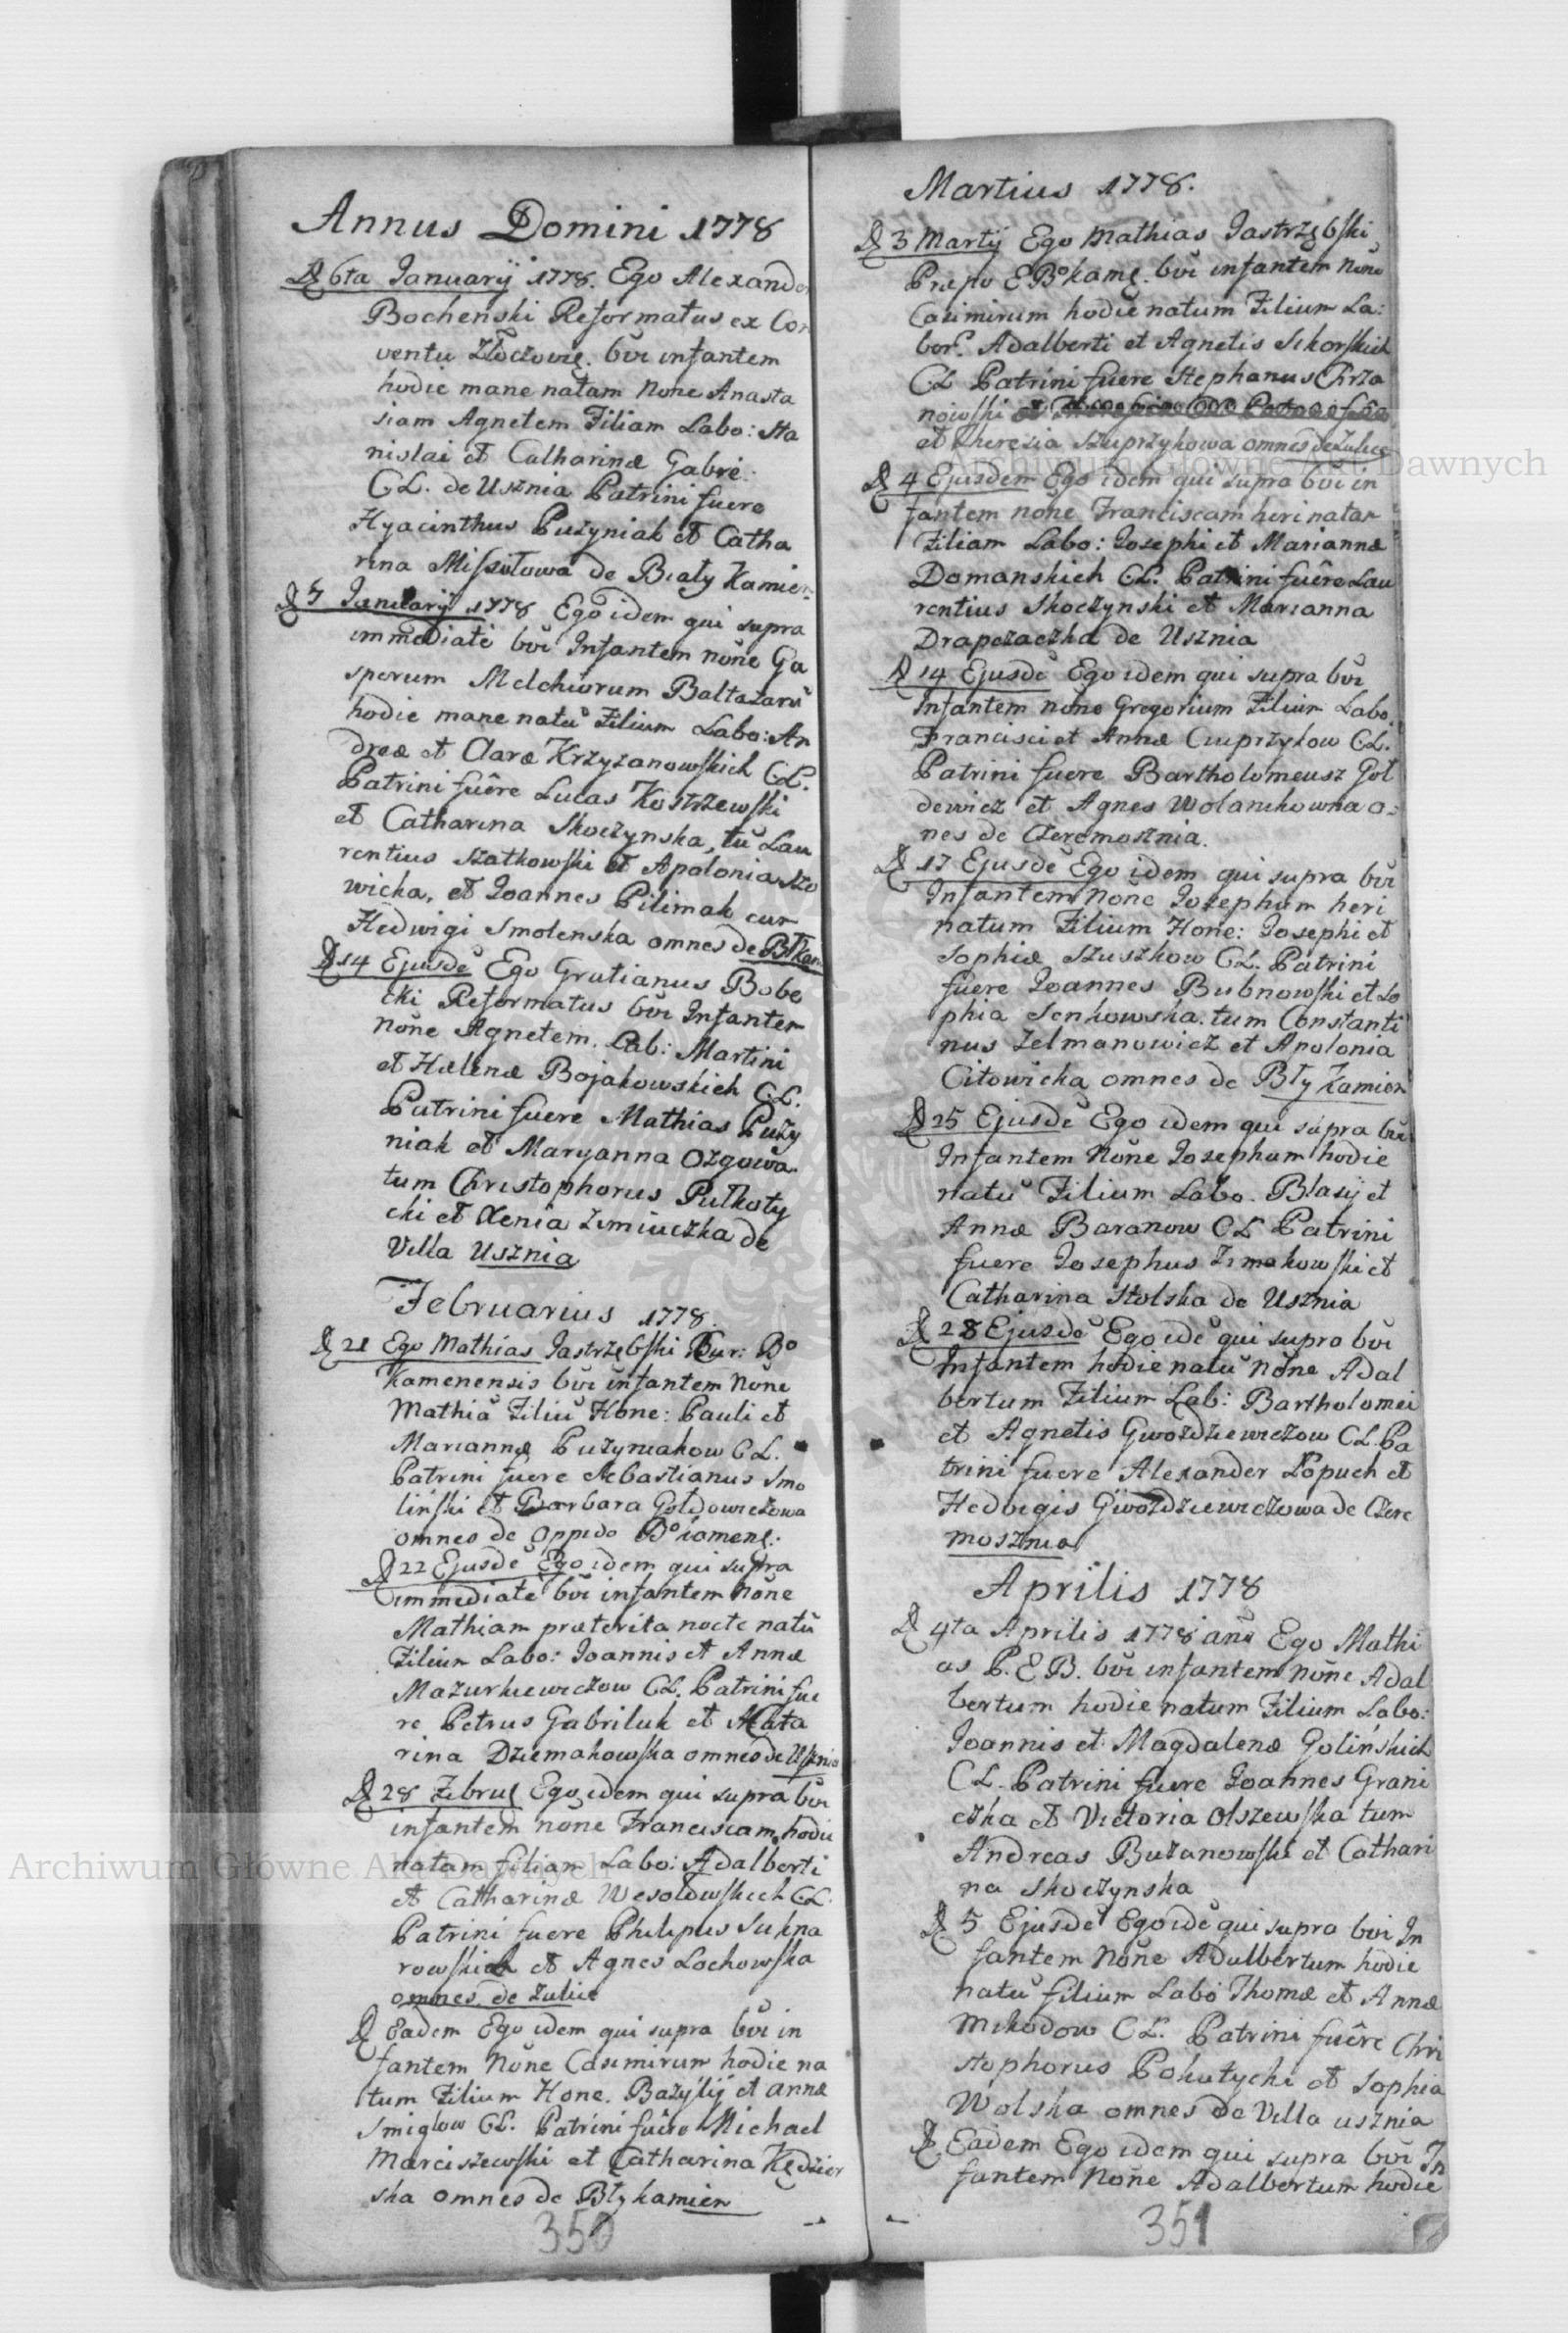 Annus Domini 1778
D 6ta Januarij 1778. Ego Alexander
Bochenski Reformatus ex Con
ventu Złoczowię. bŭi infantem
hodie mane natam None Anasta
siam Agnetem Filiam Labo: Sta
nislai et Catharinæ Gabre.
CL. de Usznia Patrini fuere
Hyacinthus Puzyniak et Catha
rina de Biały Kamien
Januarij 1778 Ego idem qui supra
immediati bŭi Infantem noñe Ga
sperum Melchiorum Baltazarŭ
hodie mane natŭ Filium Labo: An
dreæ et Claræ Krzyzanowskich CL.
Patrini fuêre Lucas Kostrzewski
et Catharina Skoczynska, tŭ Lau
rentius Szatkowski et Apolonia
wicka, et Joannes Pilimak cum
Hedwigi Smolenska omnes de
D 14 Ejusdĕ Ego Gratianus Bobe
cki Reformatus bŭi Infantem
noñe Agnetem. Lab: Martini
et Hælenæ Bojakowskich CL.
Patrini fuere Mathias Puzy
niak et Maryanna Ozgowa.
tum Christophorus Pułkoty
cki et Xenia Zimiuczka de
Villa Usznia
Februarius 1778.
D 21 Ego Mathias Jastrzębski Cur: Bo
Kamenensis bŭi infantem Noñe
Mathiă Filiŭ Hone: Pauli et
Mariannæ Puzyniakow CL.
Patrini fuere Sebastianus Smo
liński et Barbara Gołdowiczowa
omnes de Oppido
D 22 Ejusdĕ Ego idem qui supra
immediatĕ bŭi infantem Noñe
Mathiam præterita nocte natŭ
Filium Labo: Joannis et Annæ
Mazurkiewiczow CL. Patrini fue
re Petrus Gabriluk et Cata
rina Dziemakowska omnes de Usznia
D 28 Febru Ego idem qui supra bŭi
infantem noñe Franciscam hodie
natam filiam Labo: Adalberti
et Catharinæ Wesołowskich CL.
Patrini fuere Philipus Sukna
rowski et Agnes Lochowska
omnes de Zulice
D Eadem Ego idem qui supra bŭi in
fantem Noñe Casimirum hodie na
tum Filium Hone. Bazylij et Annæ
Smiglow CL. Patrini fuêre Michael
Marciszewski et Catharina Kędzier
ska omnes de Błykamien
350
Martius 1778.
D 3 Martij Ego Mathias Jastrzębski
Præpo E Bo kamę. bŭi infantem None
Casimirum hodie natum Filium La:
bor. Adalberti et Agnetis Sikorskich
CL Patrini fuere Stephanus Chrza
nowski
et Theresia Szuprzykowa omnes de Zulice
D 4 Ejusdem Ego idem qui supra bŭi in
fantem none Franciscam heri natam
Filiam Labo: Josephi et Mariannæ
Domanskich CL. Patrini fuêre Lau
rentius Skoczynski et Marianna
Drapczaczka de Usznia
D 14 Ejusdĕ Ego idem qui supra bŭi
Infantem none Gregorium Filium Labo
Francisci et Annæ Cuprzykow CL.
Patrini fuere Bartholomeusz Goł
dewicz et Agnes Wolanikowna o:
nes de Czeremosznia.
D 17 Ejusdĕ Ego idem qui supra bŭi
Infantem None Josephum heri
natum Filium Hone: Josephi et
Sophiæ Szuszkow CL. Patrini
fuere Joannes Bubnowski et So
phia Senkowska. tum Constanti
nus Zelmanowicz et Apolonia
Citowicka omnes de Bły Kamien
D 25 Ejusdĕ Ego idem qui supra bŭi
Infantem Noñe Josephum hodie
natŭ Filium Labo. Blasij et
Annæ Baranow CL Patrini
fuere Josephus Zimakowski et
Catharina Stolska de Usznia
D 28 Ejusdĕ Ego idĕ qui supra bŭi
Infantem hodie natŭ Noñe Adal
bertum Filium Lab: Bartholomei
et Agnetis Gwozdziewiczow CL. Pa
trini fuere Alexander Łopuch et
Hedvigis Gwozdziewiczowa de Czere
mosznia
Aprilis 1778
D 4ta Aprilis 1778 Ego Mathi
as P. E B. bŭi infantem Noñe Adal
bertum hodie natum Filium Labo:
Joannis et Magdalenæ Golińskich
CL. Patrini fuere Joannes Grani
czka et Victoria Olszewska tum
Andreas Buzanowski et Cathari
na Skoczynska
D 5 Ejusdĕ Ego idĕ qui supra bŭi In
fantem None Adalbertum hodie
natŭ filium Labo Thomæ et Annæ
Mikodow CL. Patrini fuêre Chri
stophorus Pokutycki et Sophia
Wolska omnes de Villa Usznia
D Eadem Ego idem qui supra bŭi In
fantem Noñe Adalbertum hodie
351
Archiwum Główne Akt Dawnych
Archiwum Główne Akt Dawnych